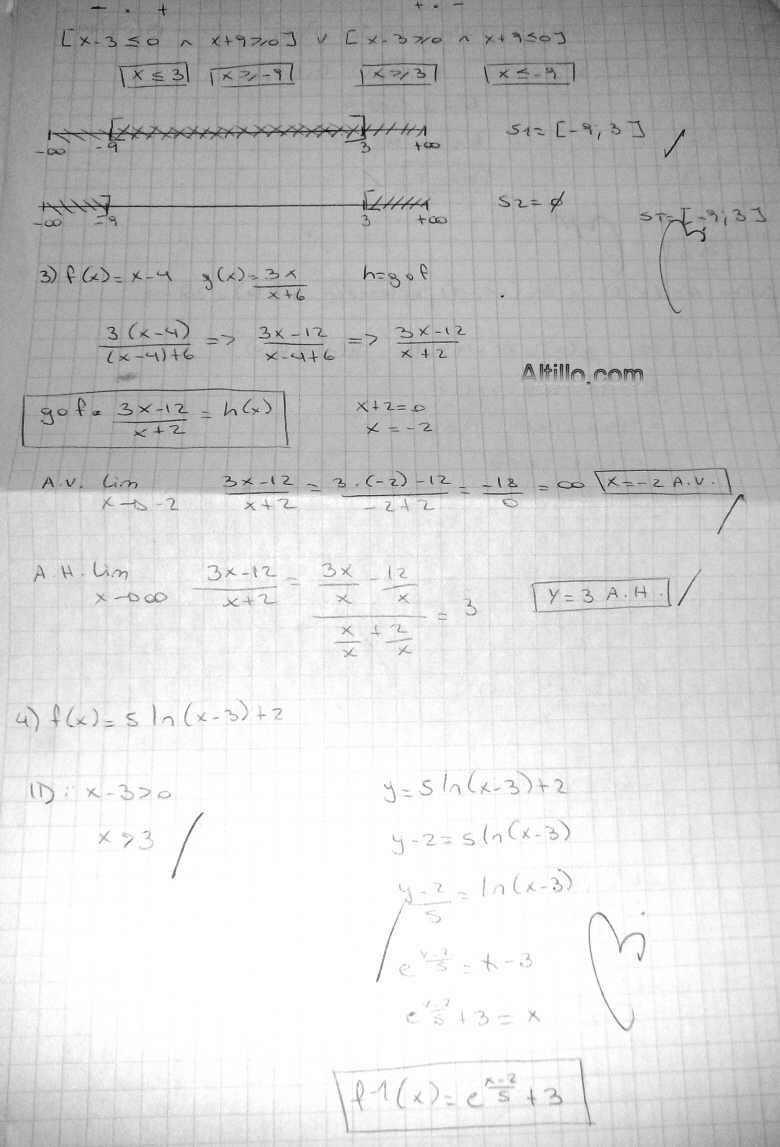 - . + + . -
[x-3≤0 ∧ x+9≥0] ∨ [x-3≥0 ∧ x+9≤0]
x≤3 x≥-9 x≥3 x≤-9
-∞ -9 3 +∞ S1=[-9;3]
-∞ -9 3 +∞ S2=∅
ST=[-9;3]
3) f(x)=x-4 g(x)=3x/(x+6) h=gof
3(x-4)/((x-4)+6) => (3x-12)/(x-4+6) => (3x-12)/(x+2)
Altillo.com
gof=(3x-12)/(x+2)=h(x) x+2=0
x=-2
A.V. Lim x→-2 (3x-12)/(x+2)=(3.(-2)-12)/(-2+2)=-18/0=∞ x=-2 A.V.
A.H. Lim x→∞ (3x-12)/(x+2)=(3x/x-12/x)/(x/x+2/x)=3 y=3 A.H.
4) f(x)=5 ln(x-3)+2
D: x-3>0
x>3
y=5 ln(x-3)+2
y-2=5 ln(x-3)
(y-2)/5=ln(x-3)
e^((y-2)/5)=x-3
e^((y-2)/5)+3=x
f-1(x)=e^((x-2)/5)+3